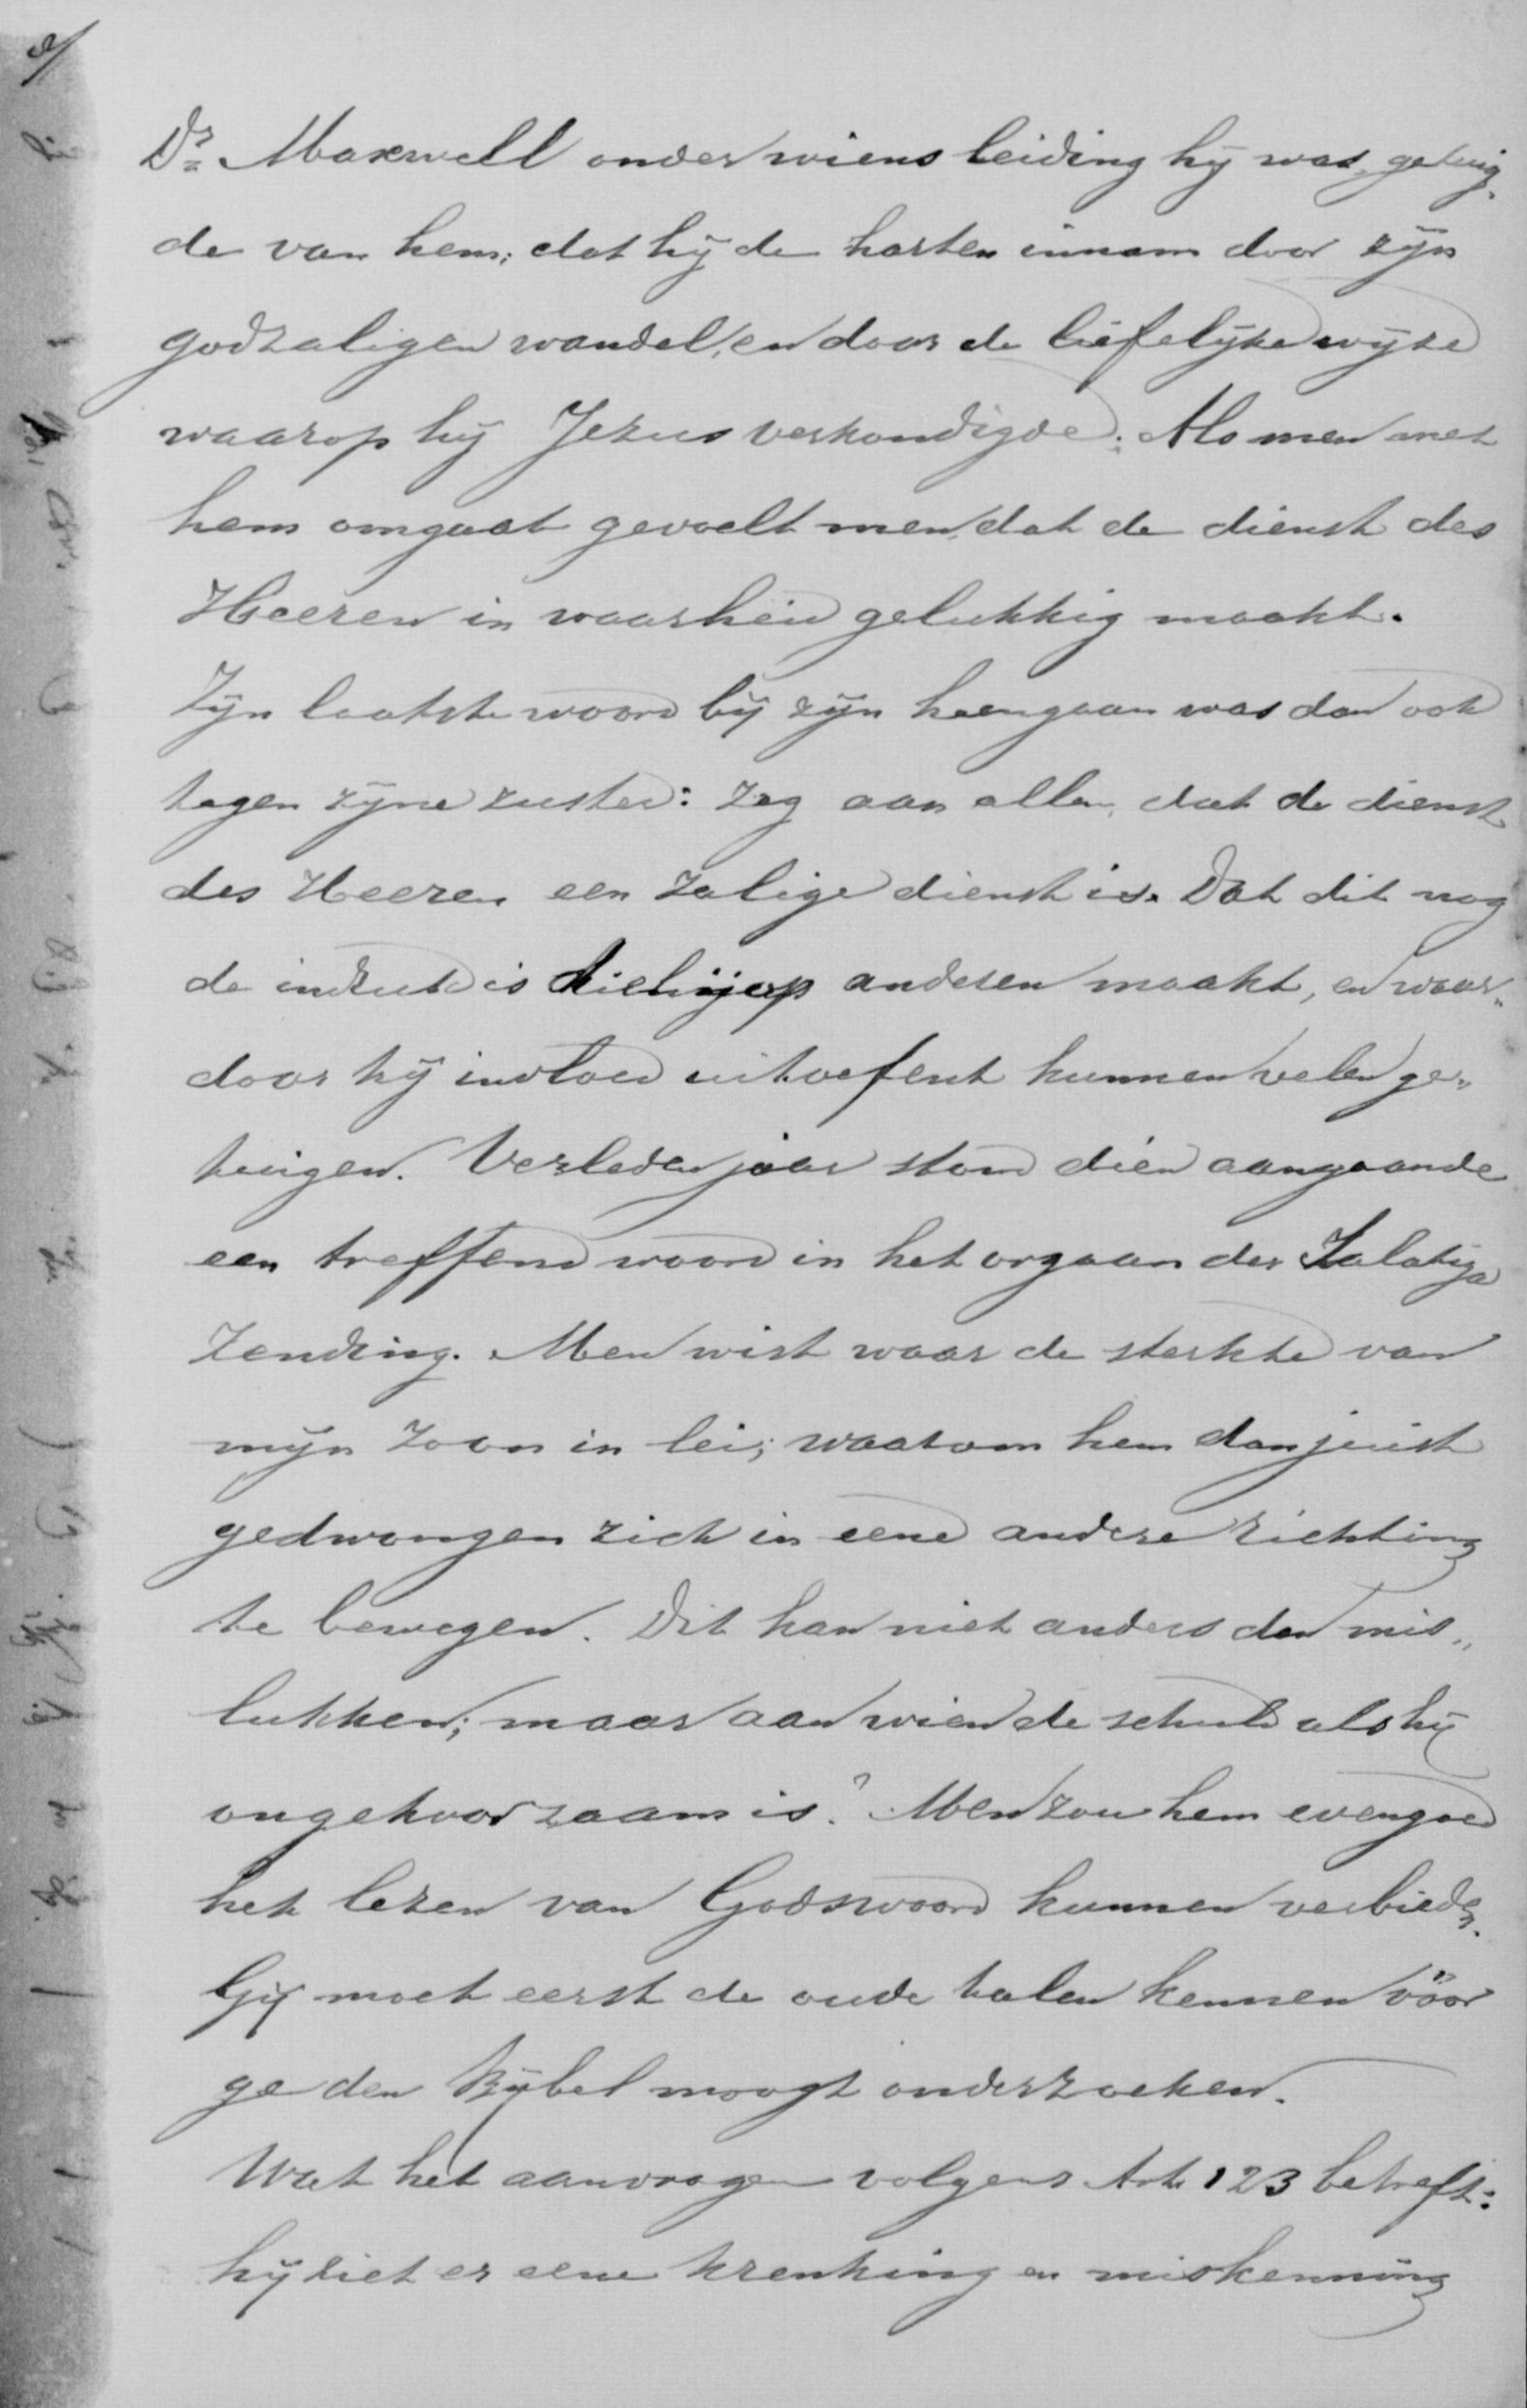 Dr. Maxwell onder wiens leiding hij was, getuig„
de van hem; dat hij de harten innam door zijn
godzaligen wandel, en door de liefelijke wijze
waarop hij Jezus verkondigde. Als men met
hem omgaat gevoelt men, dat de dienst des
Heeren in waarheid gelukkig maakt.
Zijn laatste woord bij zijn heengaan was dan ook
tegen zijne zuster: zeg aan allen, dat de dienst
des Heeren een zalige dienst is. Dat dit nog
de indruk is die hij op anderen maakt, en waar„
door hij invloed uitoefent kunnen velen ge„
tuigen. Verleden jaar stond dien aangaande
een treffend woord in het orgaan der Salatiga
Zending. Men wist waar de sterkte van
mijn zoon in lei; waarom hem dan juist
gedwongen zich in eene andere richting
te bewegen. Dit kan niet anders dan mis„
lukken; maar aan wien de schuld als hij
ongehoorzaam is? Men zou hem evengoed
het lezen van Gods woord kunnen verbieden.
Gij moet eerst de oude talen kennen vóór
ge den Bijbel moogt onderzoeken.
Wat het aanvragen volgens Art 123 betreft:
hij ziet er eene krenking en miskenning